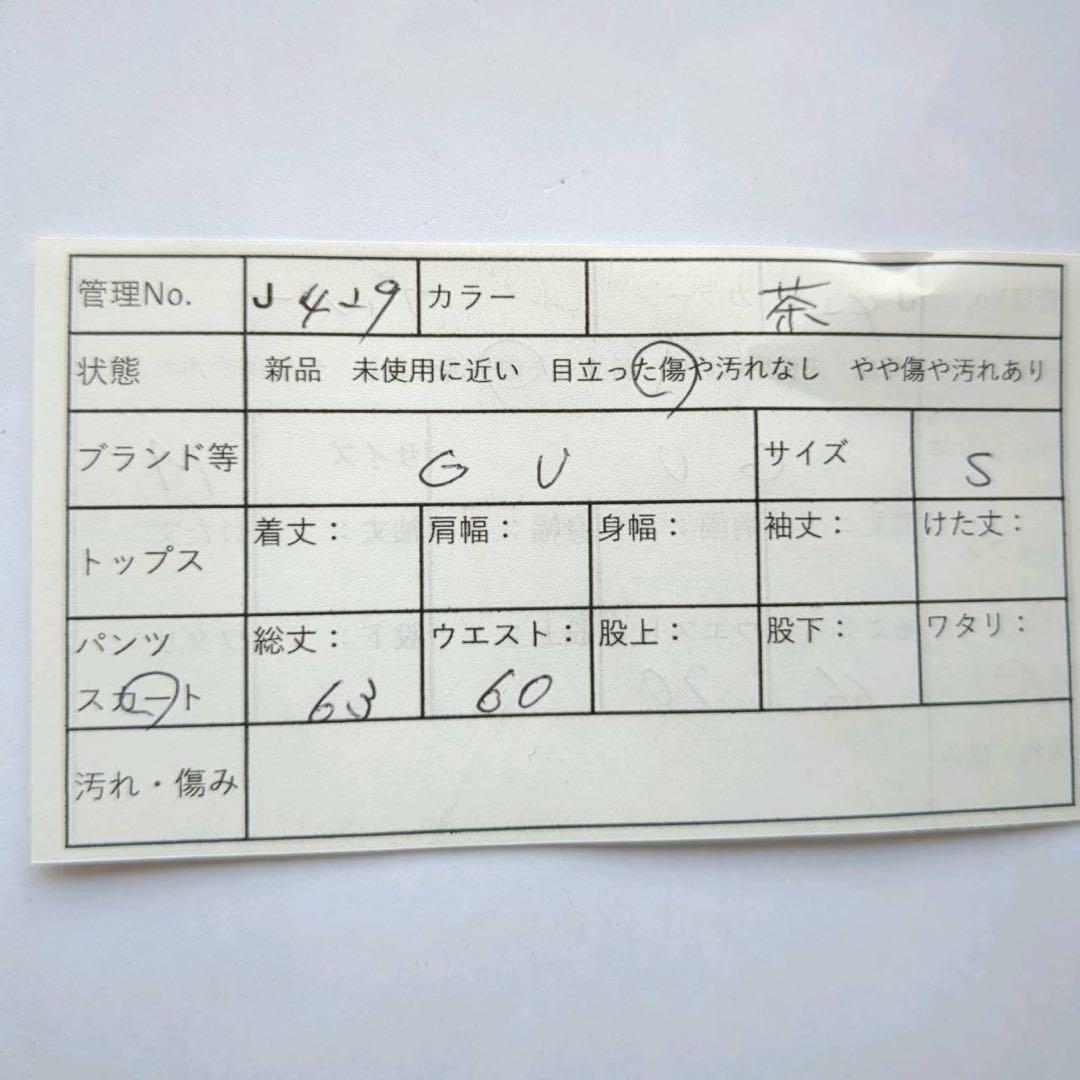 管理No. J 429 カラー 茶
状態 新品 未使用に近い 目立った傷や汚れなし やや傷や汚れあり
ブランド等 GU サイズ S
トップス 着丈： 肩幅： 身幅： 袖丈： けた丈：
パンツ 総丈： ウエスト： 股上： 股下： ワタリ：
スカート 63 60
汚れ・傷み